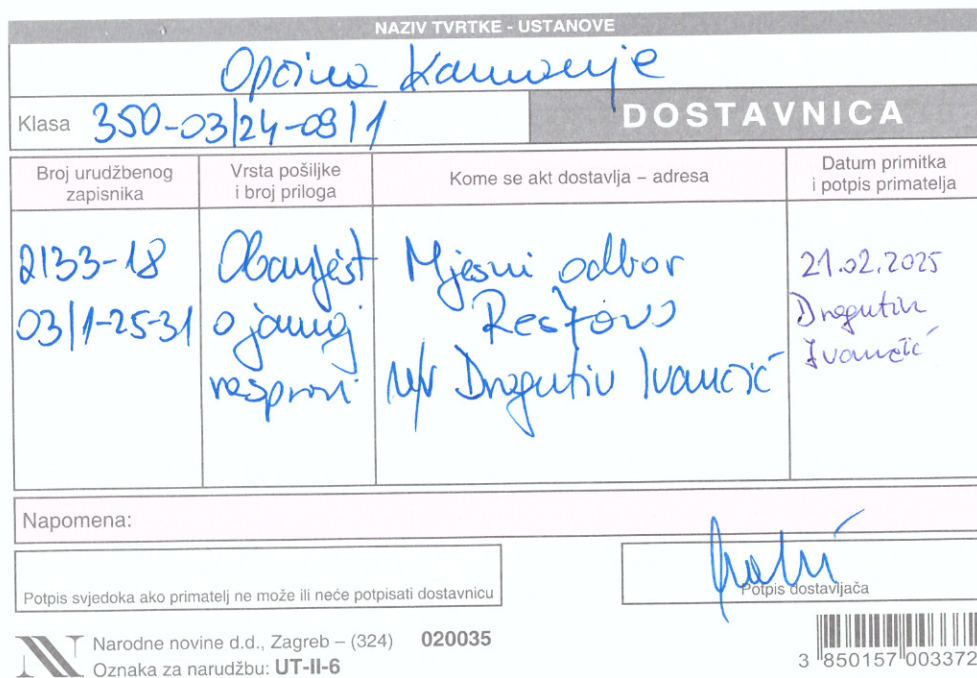 NAZIV TVRTKE - USTANOVE
Općina Kamanje
Klasa 350-03/24-03/1
DOSTAVNICA
Broj urudžbenog
zapisnika
Vrsta pošiljke
i broj priloga
Kome se akt dostavlja – adresa
Datum primitka
i potpis primatelja
2133-18
03/1-25-31
Obavijest
o javnoj
raspravi
Mjesni odbor
Reštovo
n/r Dragutin Ivančić
21.02.2025
Dragutin
Ivančić
Napomena:
Potpis svjedoka ako primatelj ne može ili neće potpisati dostavnicu
Potpis dostavljača
Narodne novine d.d., Zagreb – (324) 020035
Oznaka za narudžbu: UT-II-6
3 850157 003372